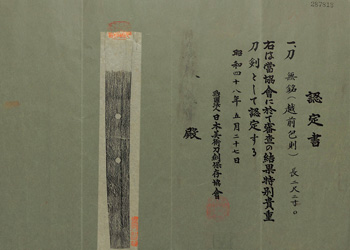 認定書
一、刀 無銘(越前包則) 長二尺二寸
右は當協會に於て審査の結果特別貴重
刀剣として認定する
昭和四十八年五月二十七日
財團法人日本美術刀剣保存協會
殿